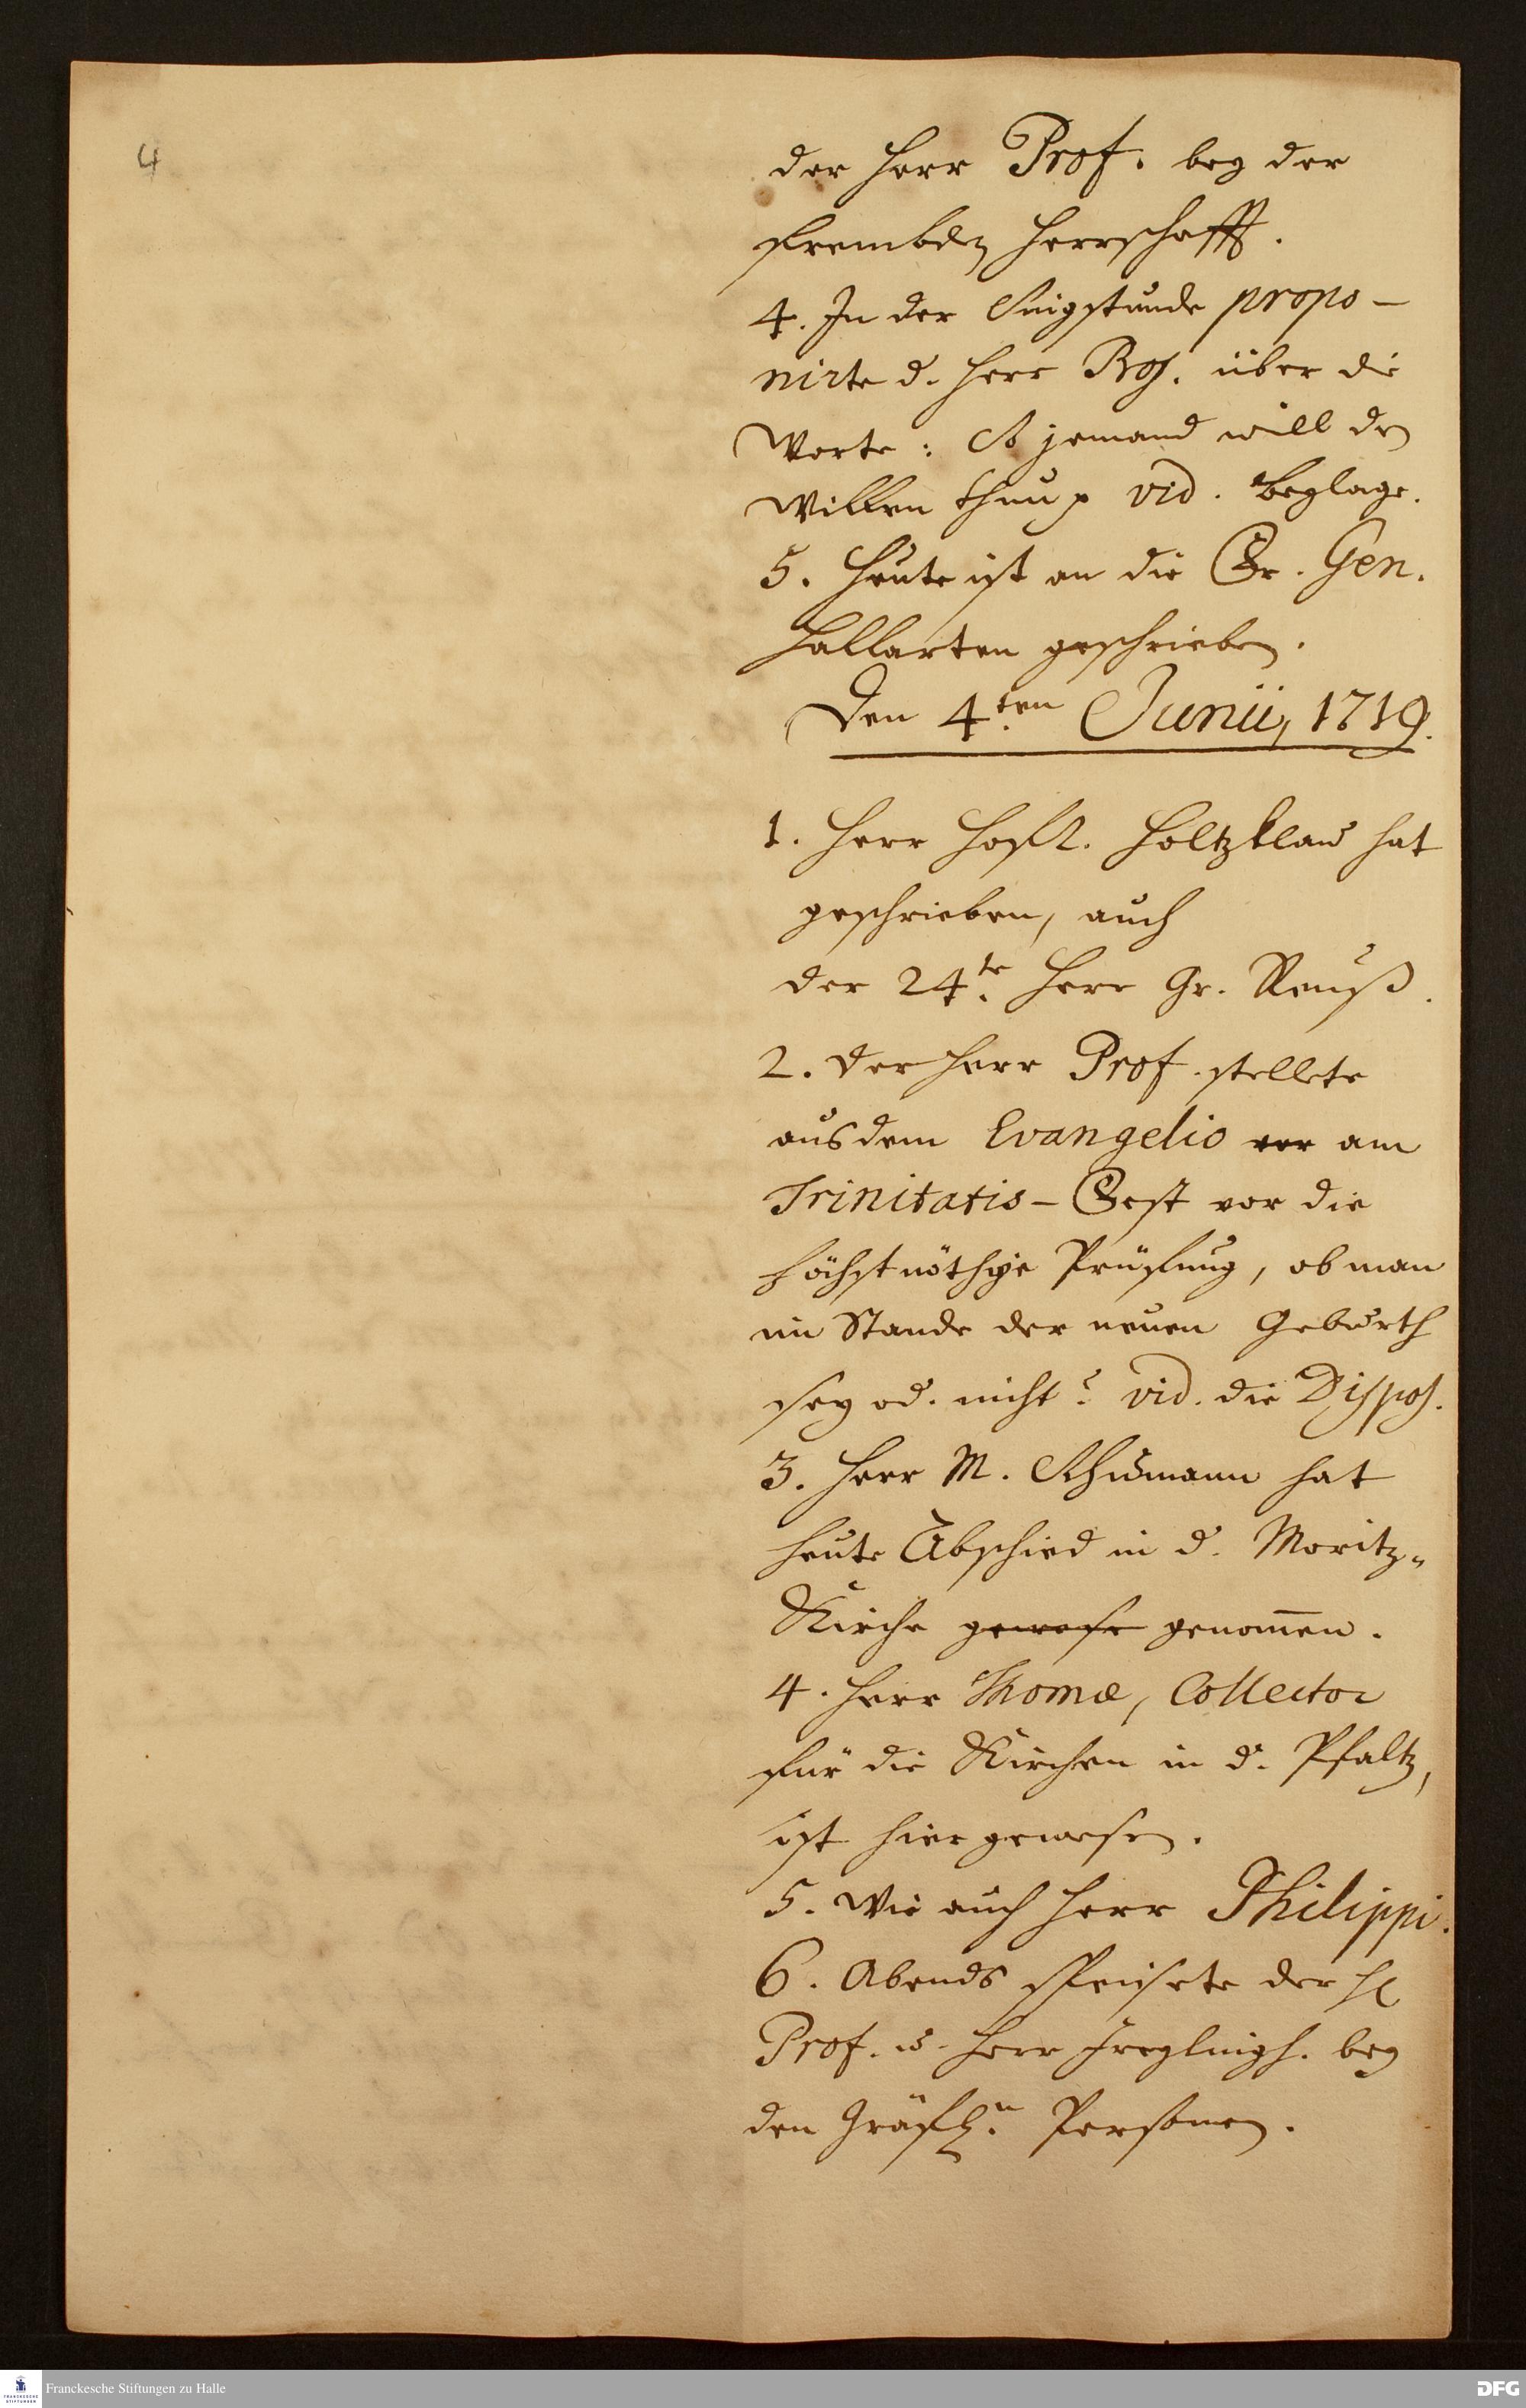 4
der Herr Prof. bey der
frembden Herrschafft.
4. In der Singstunde propo-
nirte d. Herr Prof. über die
Worte: So jemand will den
Willen thun p vid. Beylage.
5. Heute ist an die Fr. Gen.
Hallarten geschrieben.
Den 4.ten Junii, 1719.
1. Herr HofR. Holtzklau hat
geschrieben, auch
der 24.te Herr Gr. Reuß.
2. Der Herr Prof. stellete
aus dem Evangelio vor am
Trinitatis-Fest vor die
höchstnöthige Prüfung, ob man
im Stande der neuen Geburth
sey od. nicht? vid. die Dispos.
3. Herr M. Schumann hat
heute Abschied in d. Moritz-
Kirche gewese genom̄en.
4. Herr Thomæ, Collector
für die Kirchen in d. Pfaltz,
ist hier gewesen.
5. Wie auch Herr Philippi.
6. Abends speisete der H.
Prof. u. Herr Freylingh. bey
den Gräfl.n Personen.
Franckesche Stiftungen zu Halle
FRANCKESCHE
STIFTUNGEN
DFG